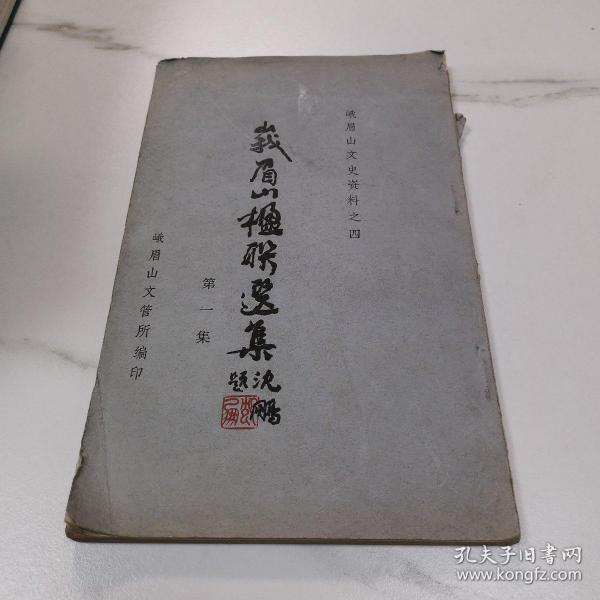 峨眉山文史资料之四
峩眉山楹联选集
沈鹏
题
第一集
峨眉山文管所编印
孔夫子旧书网
www.kongfz.com